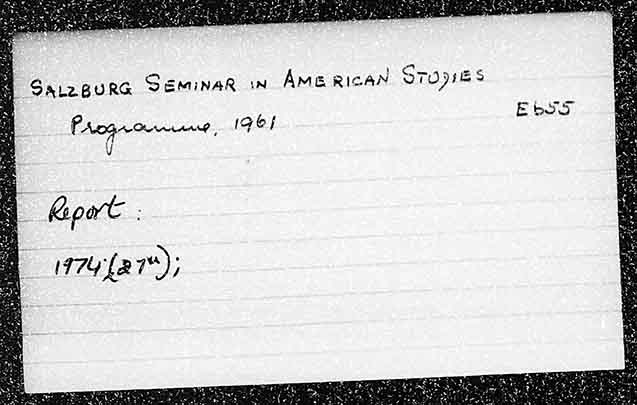 SALZBURG SEMINAR IN AMERICAN STUDIES
Programme, 1961
Eb55
Report :
1974 (27th);